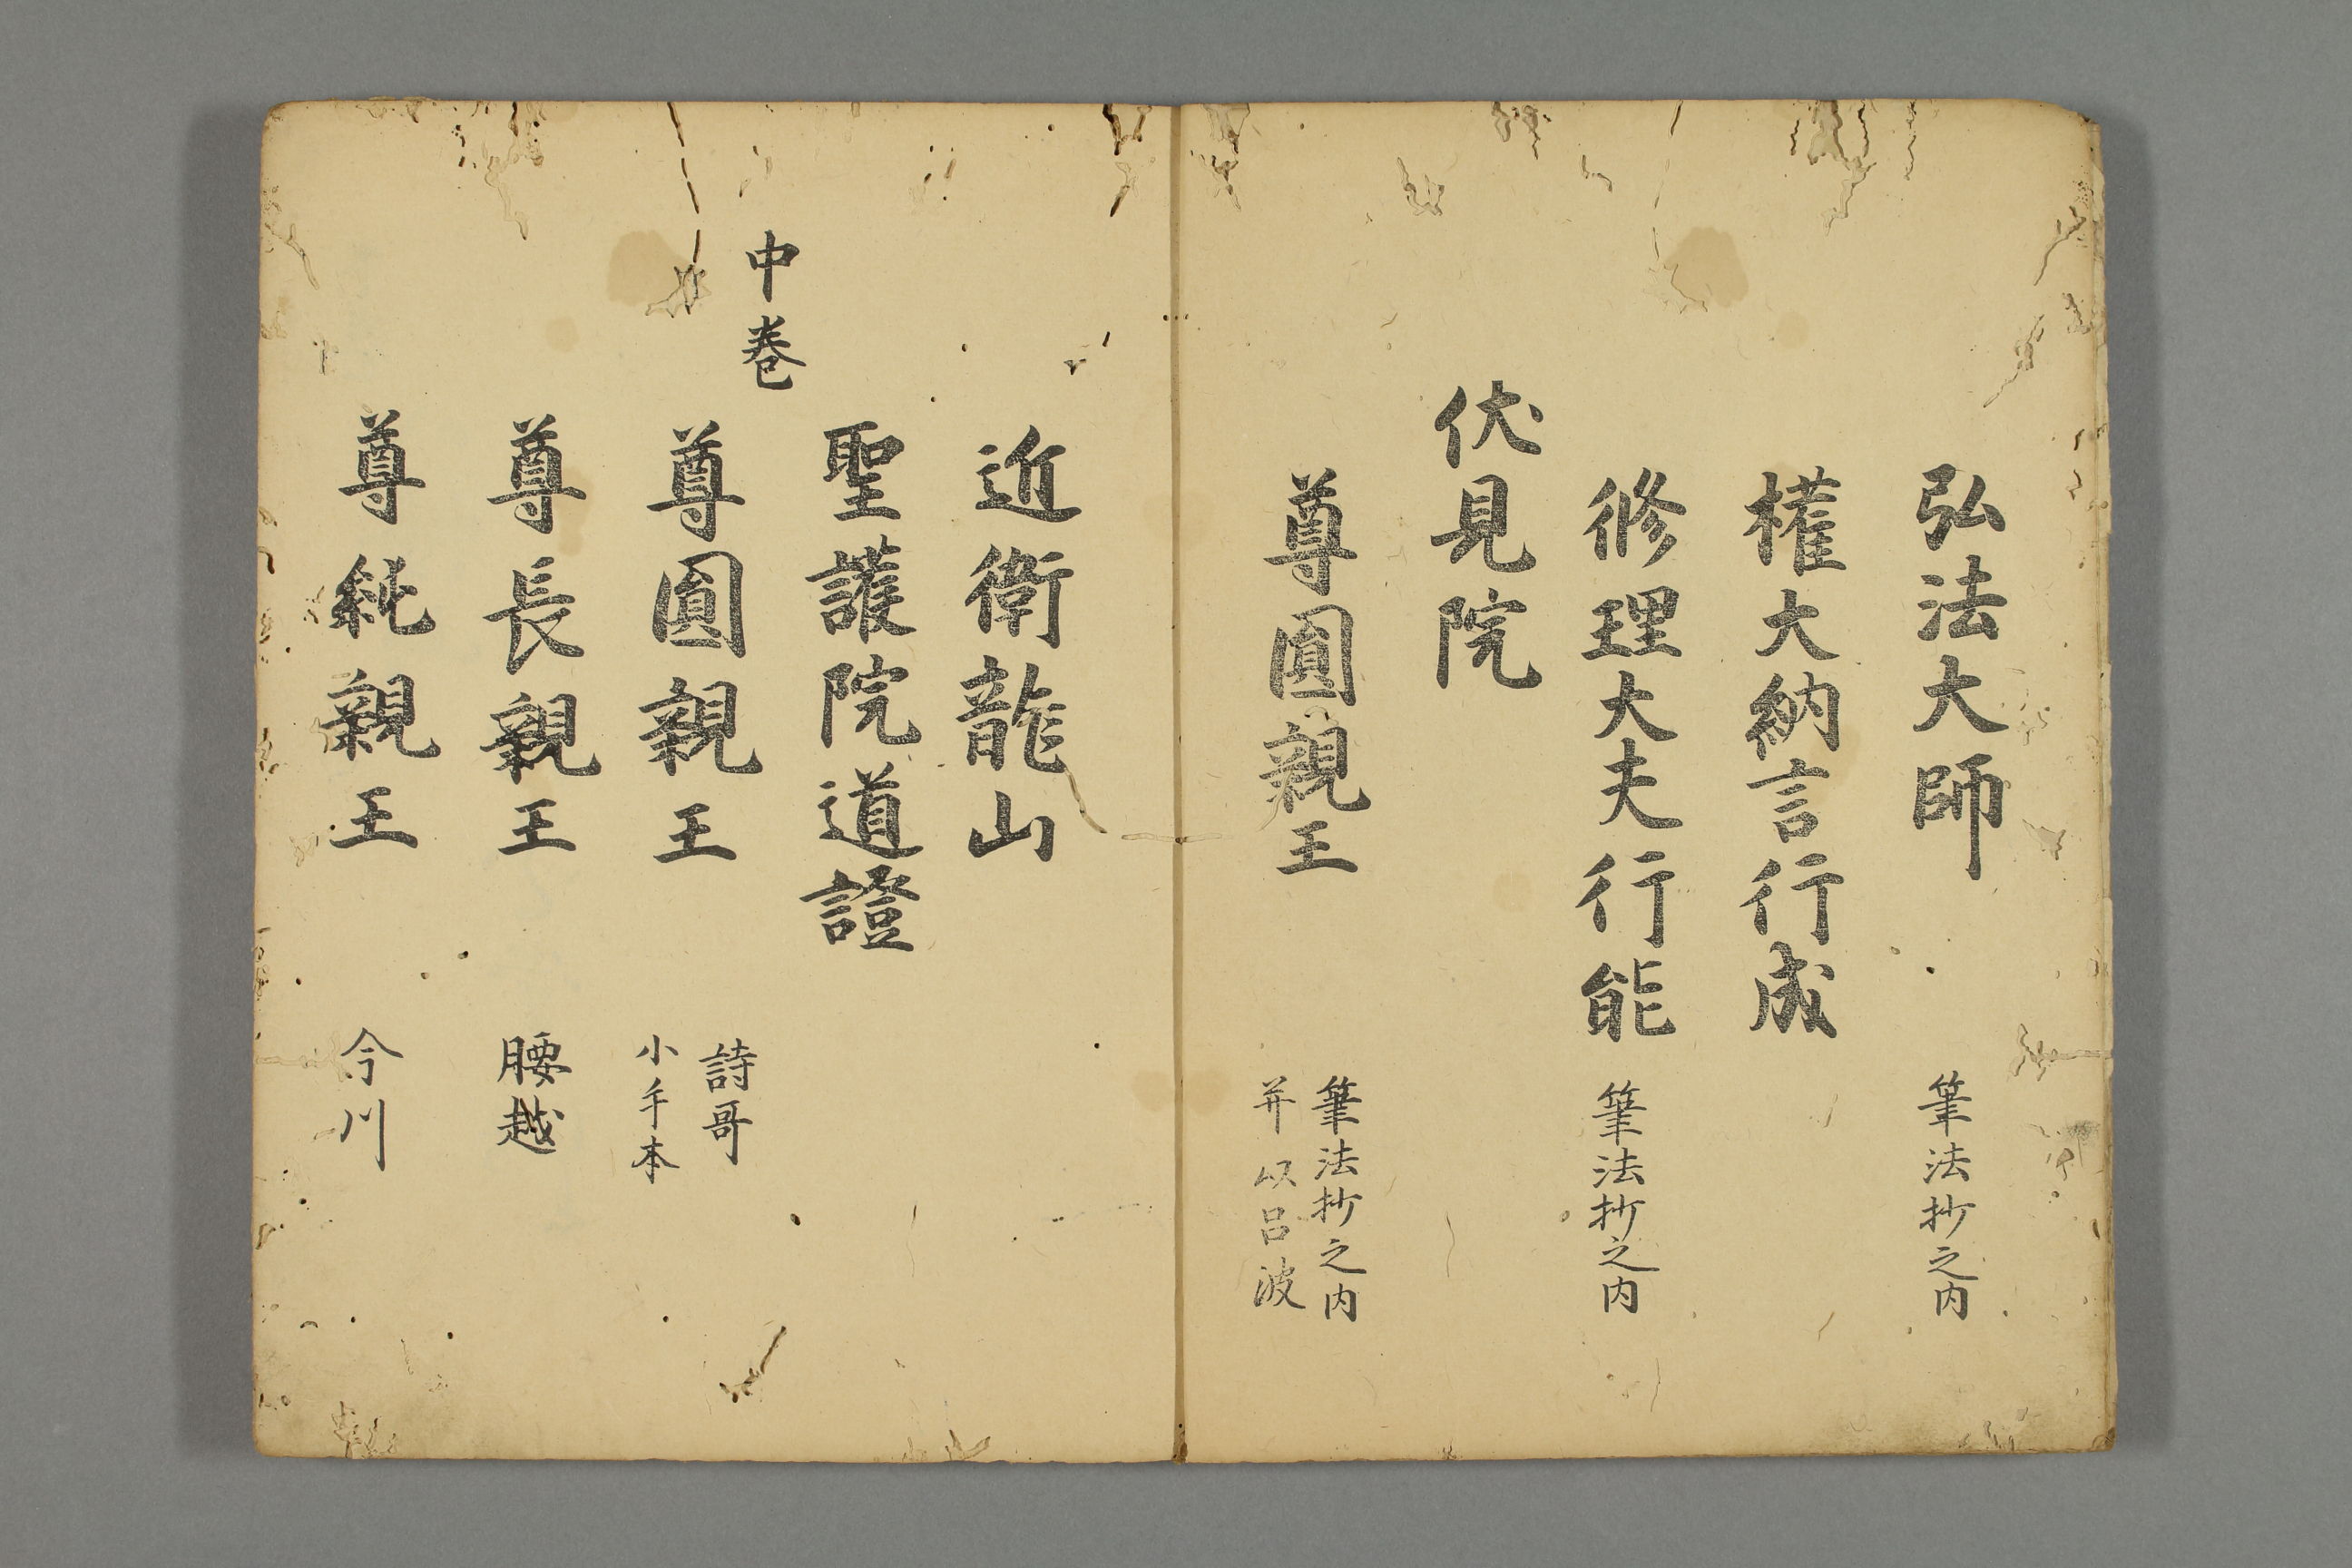 弘法大師 筆法抄之内
權大納言行成
修理大夫行能 筆法抄之内
伏見院
尊圓親王 筆法抄之内
并以呂波
近衛龍山
聖護院道證
中巻
尊圓親王 詩哥
小手本
尊長親王 腰越
尊純親王 今川